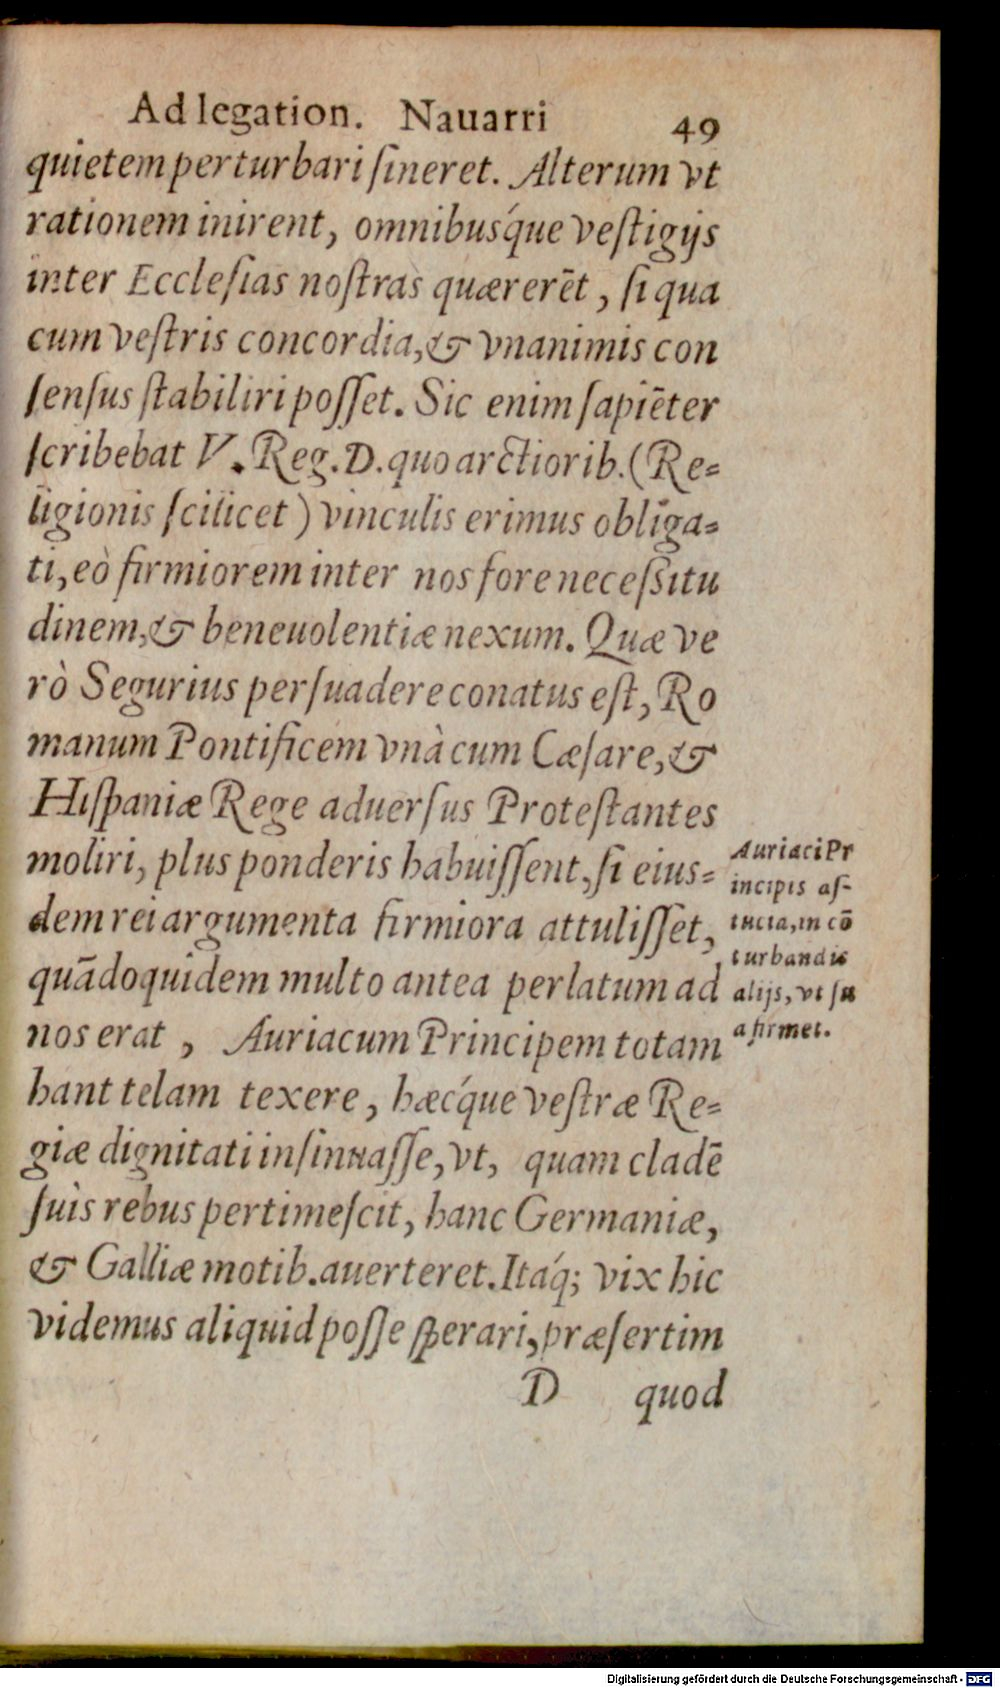 Ad legation. Nauarri 49
quietem perturbari ſineret. Alterum vt
rationem inirent, omnibuśque veſtigijs
inter Eccleſias noſtras quærerēt, ſi qua
cum veſtris concordia, & vnanimis con
ſenſus ſtabiliri poſſet. Sic enim ſapiēter
ſcribebat V. Reg. D. quo arctiorib. (Re-
ligionis ſcilicet) vinculis erimus obliga-
ti, eò firmiorem inter nos fore neceſsitu
dinem, & beneuolentiæ nexum. Quæ ve
rò Segurius perſuadere conatus eſt, Ro
manum Pontificem vnà cum Cæſare, &
Hiſpaniæ Rege aduerſus Proteſtantes
moliri, plus ponderis habuiſſent, ſi eius-
dem rei argumenta firmiora attuliſſet,
quādoquidem multo antea perlatum ad
nos erat, Auriacum Principem totam
hant telam texere, hæćque veſtræ Re-
giæ dignitati inſinuaſſe, vt, quam cladē
ſuis rebus pertimeſcit, hanc Germaniæ,
& Galliæ motib. auerteret. Itáq; vix hic
videmus aliquid poſſe ſperari, præſertim
D quod
Auriaci Pr
incipis aſ-
tucia, in cō
turbandis
alijs, vt ſu
a firmet.
Digitalisierung gefördert durch die Deutsche Forschungsgemeinschaft - DFG